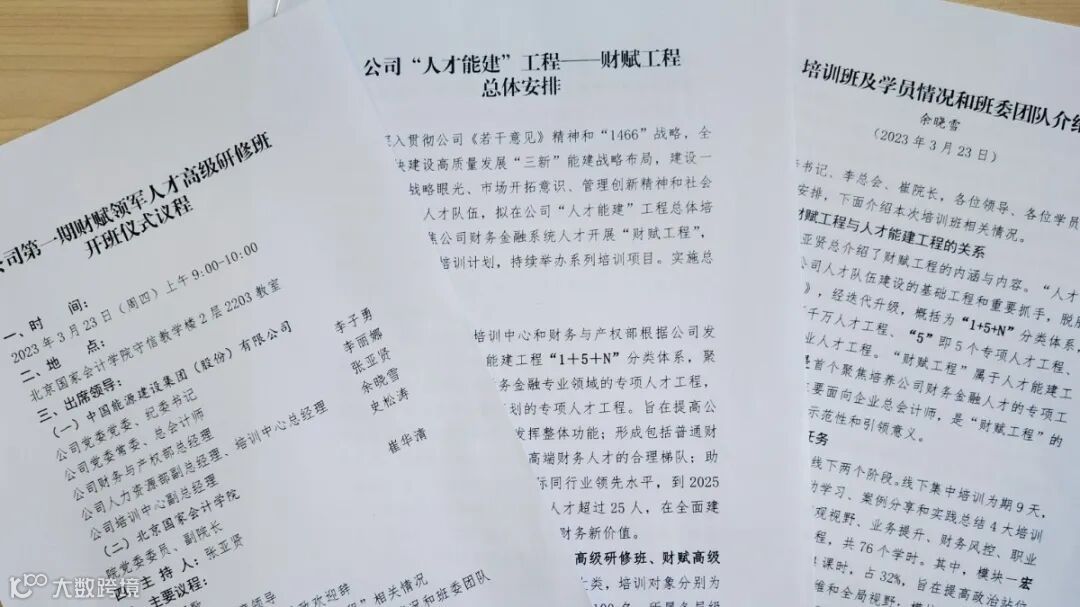 公司第一期财赋领军人才高级研修班
开班仪式议程
一、时 间:
2023 年 3 月 23 日（周四）上午 9:00-10:00
二、地 点:
北京国家会计学院守信教学楼 2 层 2203 教室
三、出席领导:
（一）中国能源建设集团（股份）有限公司
公司党委常委、纪委书记 李子勇
公司党委常委、总会计师 李丽娜
公司财务与产权部总经理 张亚贤
公司人力资源部副总经理、培训中心总经理 余晓雪
公司培训中心副总经理 史松涛
（二）北京国家会计学院
院党委委员、副院长 崔华清
四、主 持 人: 张亚贤
五、主要议程:
公司“人才能建”工程——财赋工程
总体安排
深入贯彻公司《若干意见》精神和“1466”战略，全
快建设高质量发展“三新”能建战略布局，建设一
战略眼光、市场开拓意识、管理创新精神和社会
人才队伍，拟在公司“人才能建”工程总体培
焦公司财务金融系统人才开展“财赋工程”，
培训计划，持续举办系列培训项目。实施总
培训中心和财务与产权部根据公司发
能建工程“1+5+N”分类体系，聚
务金融专业领域的专项人才工程，
划的专项人才工程。旨在提高公
发挥整体功能；形成包括普通财
高端财务人才的合理梯队；助
际同行业领先水平，到 2025
人才超过 25 人，在全面建
财务新价值。
高级研修班、财赋高级
类，培训对象分别为
培训班及学员情况和班委团队介绍
余晓雪
（2023 年 3 月 23 日）
书记、李总会、崔院长，各位领导、各位学员
安排，下面介绍本次培训班相关情况。
财赋工程与人才能建工程的关系
亚贤总介绍了财赋工程的内涵与内容。“人才
公司人才队伍建设的基础工程和重要抓手，脱胎
》，经迭代升级，概括为“1+5+N”分类体系，
千万人才工程、“5”即 5 个专项人才工程、
业人才工程。“财赋工程”属于人才能建工
是首个聚焦培养公司财务金融人才的专项工
主要面向企业总会计师，是“财赋工程”的
示范性和引领意义。
任务
线下两个阶段。线下集中培训为期 9 天，
动学习、案例分享和实践总结 4 大培训
观视野、业务提升、财务风控、职业
程，共 76 个学时。其中，模块一宏
课时，占 32%，旨在提高政治站位
维和全局视野；模
大数跨境